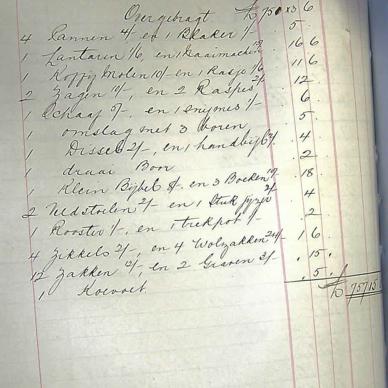 Overgebragt £ 750 x3 6
4 Cannen 4/ en 1 Blaker 1/- . 5
1 Lantaren 1/6, en 1 Naaimachine 16 6
1 Koffy Molen 10/- en 1 Rasp 1/6 11 6
2 Zagen 10/-, en 2 Raspes 2/- 12
1 Schaaf 5/-, en 1 1/- . 6
1 omslag met 3 boren . 5
1 Dissel 2/-, en 1 handbijl 2/- . 4
1 draai Boor . 2
1 Klein Bijbel 8/- en 3 Boeken 10/- . 18
2 Veldstoelen 2/- en 1 Stryk yzer 2/- . 4
1 Rooster 1/-, en 1 trekpot 1/- . 2
4 Zikkels 2/-, en 4 Wolzakken 16
12 Zakken 12/, en 2 Graven 3/- . 15 .
1 Koevoet . 5 .
£ 757 15